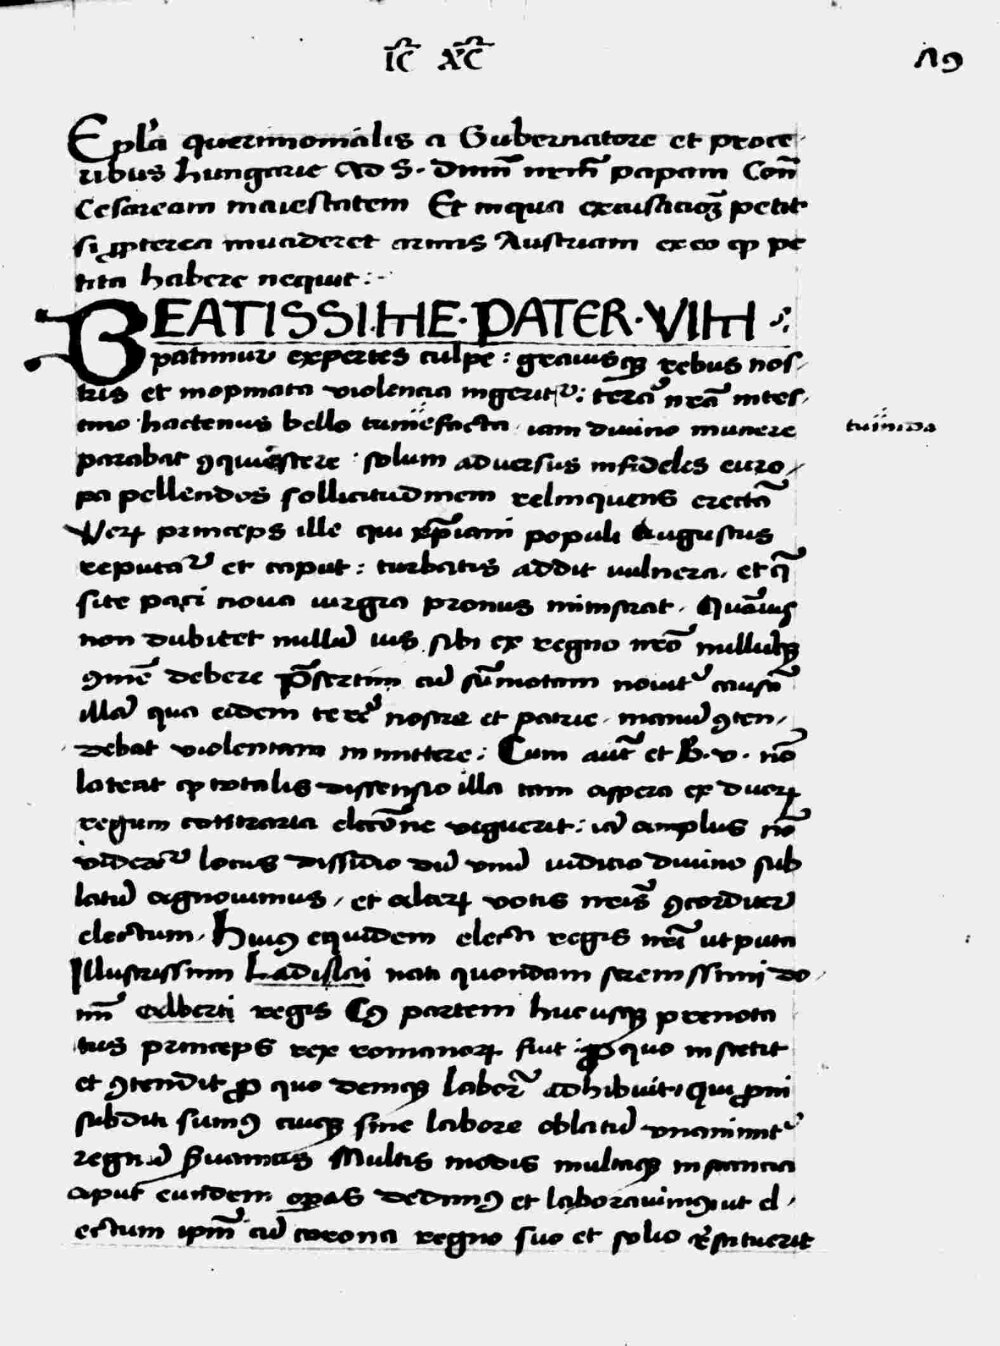 IC XC 19
Epl̄a querimonialis a Gubernatore et proce-
ribus hungarie Ad S. Dnm̄ nr̄m papam Con̄
Cesaream maiestatem Et iniqua excusacōꝫ petit
si ꝓpterea inuaderet armis Austriam ex eo qꝫ pe
tita habere nequit:-
BEATISSIME·PATER·VIM
patimur expertes culpe: grauisqꝫ rebus nos-
tris et inopinata violencia ingeritᷣ: terrā nr̄am intes-
tino hactenus bello tumefacta, iam diuino munere
tumida
parabat ꝯquiescere· solum aduersus infideles euro-
pa pellendos sollicitudinem relinquens erectā
Verꝝ princeps ille qui xp̄iani populi Augustus
reputaᷣ et caput: turbatis addit vulnera, et q̄
site paci noua iurgia pronus ministrat. Quāuis
non dubitet nullū ius sibi ex regno nr̄o nullūqꝫ
ꝯmē debere p̄sertim cū sūmotam nouitᷣ causā
illā qua eidem terrᷣ nostre et patrie, manū ꝯten-
debat violentam inmittere: Cum aut̄ et B. v. nō
lateat qꝫ totalis dissensio illa tam aspera ex duoꝝ
regum contraria elecōne viguerit: iā amplius nō
videaᷣ locus dissidio dū vnū iudicio diuino sub
latū agnouimus, et alaꝝ votis nr̄is ꝯcorditer
electum. Huiꝯ equidem electi regis nr̄i utputa
Illustrissimi Ladislai nati quondam serenissimi do-
mī Adberti regis Cꝯ partem hucusqꝫ prenota
tus princeps rex romanoꝝ fuit ꝓ quo instetit
et ꝯtendit ꝓ quo deniqꝫ laborē adhibuit, Qui ꝓni
subditi sumꝯ cuiqꝫ sine labore oblatū vnanimitᷣ
regnū p̄uamus Multis modis multaqꝫ instancia
aput eundem oꝑas dedimꝯ et laborauimꝯ ut el-
ectum ip̄m cū corona regno suo et solio r̄stituerit